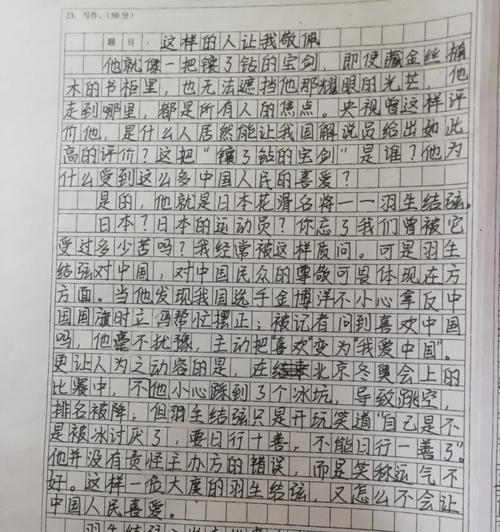 23. 写作。(50分)
题目：这样的人让我敬佩
他就像一把镶了钻的宝剑，即使藏金丝楠
木的书柜里，也无法遮挡他那耀眼的光芒，他
走到哪里，都是所有人的焦点。央视曾这样评
价他，是什么人居然能让我国解说员给出如此
高的评价？这把“镶了钻的宝剑”是谁？他为
什么受到这么多中国人民的喜爱？
是的，他就是日本花滑名将——羽生结弦。
日本？日本的运动员？你忘了我们曾被它
受过多少苦吗？我经常被这样质问。可是羽生
结弦对中国，对中国民众的尊敬可畏体现在方
方面。当他发现我国选手金博洋不小心拿反中
国国旗时立马帮忙摆正；被记者问到喜欢中国
吗，他毫不犹豫，主动把“喜欢”变为“我爱中国”。
更让人为之动容的是，在北京冬奥会上的
比赛中，不他小心踩到了个冰坑，导致跳空，
排名被降；但羽生结弦只是开玩笑道“自己是不
是被冰讨厌了，要日行十善，不能日行一善了”。
他并没有责怪主办方的错误，而是笑称运气不
好。这样一位大度的羽生结弦，又怎么不会让
中国人民喜爱。